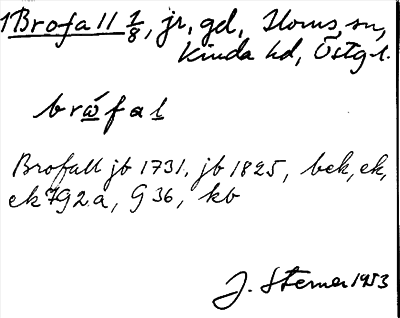 1 Brofall 1/8, jr, gd, Horns, sn,
Kinda hd, Östgl.
brωfal
Brofall jb 1731, jb 1825, bek, ek,
ek 792.a, G 36, kb
J. Sterner 1953